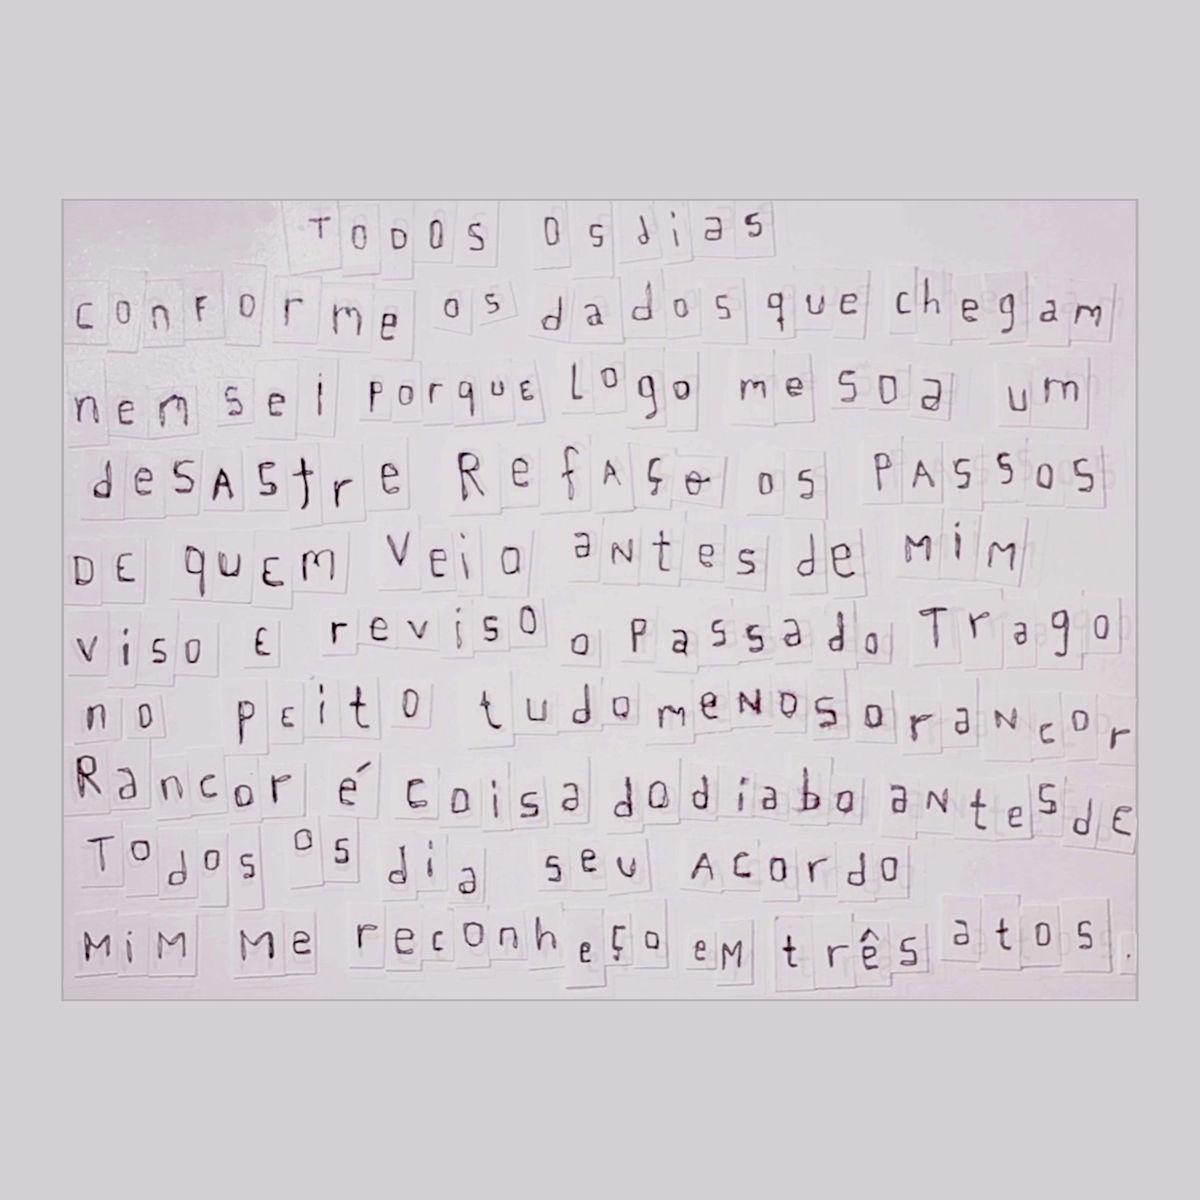 TODOS OS dias
conForme os dados que chegam
nem sei PorquE Logo me soa um
deSAStre RefAço os PASSOS
DE quEm Veio aNtes de MiM
viso E reviso o Passado Trago
no pEito tudo meNos o raNcor
Rancor é coisa do diabo aNtes dE
Todos os dia seu Acordo
MiM Me reconheço eM três atos.